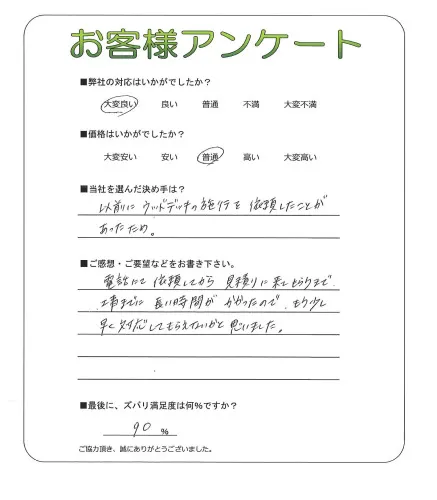 お客様アンケート
■弊社の対応はいかがでしたか？
大変良い 良い 普通 不満 大変不満
■価格はいかがでしたか？
大変安い 安い 普通 高い 大変高い
■当社を選んだ決め手は？
以前に ウッドデッキの施行を 依頼したことが
あったため。
■ご感想・ご要望などをお書き下さい。
電話にて 依頼してから 見積りに来てもらうまで、
工事までに 長い時間が かかったので、もう少し
早く対応してもらえないかと 思いました。
■最後に、ズバリ満足度は何％ですか？
90 ％
ご協力頂き、誠にありがとうございました。